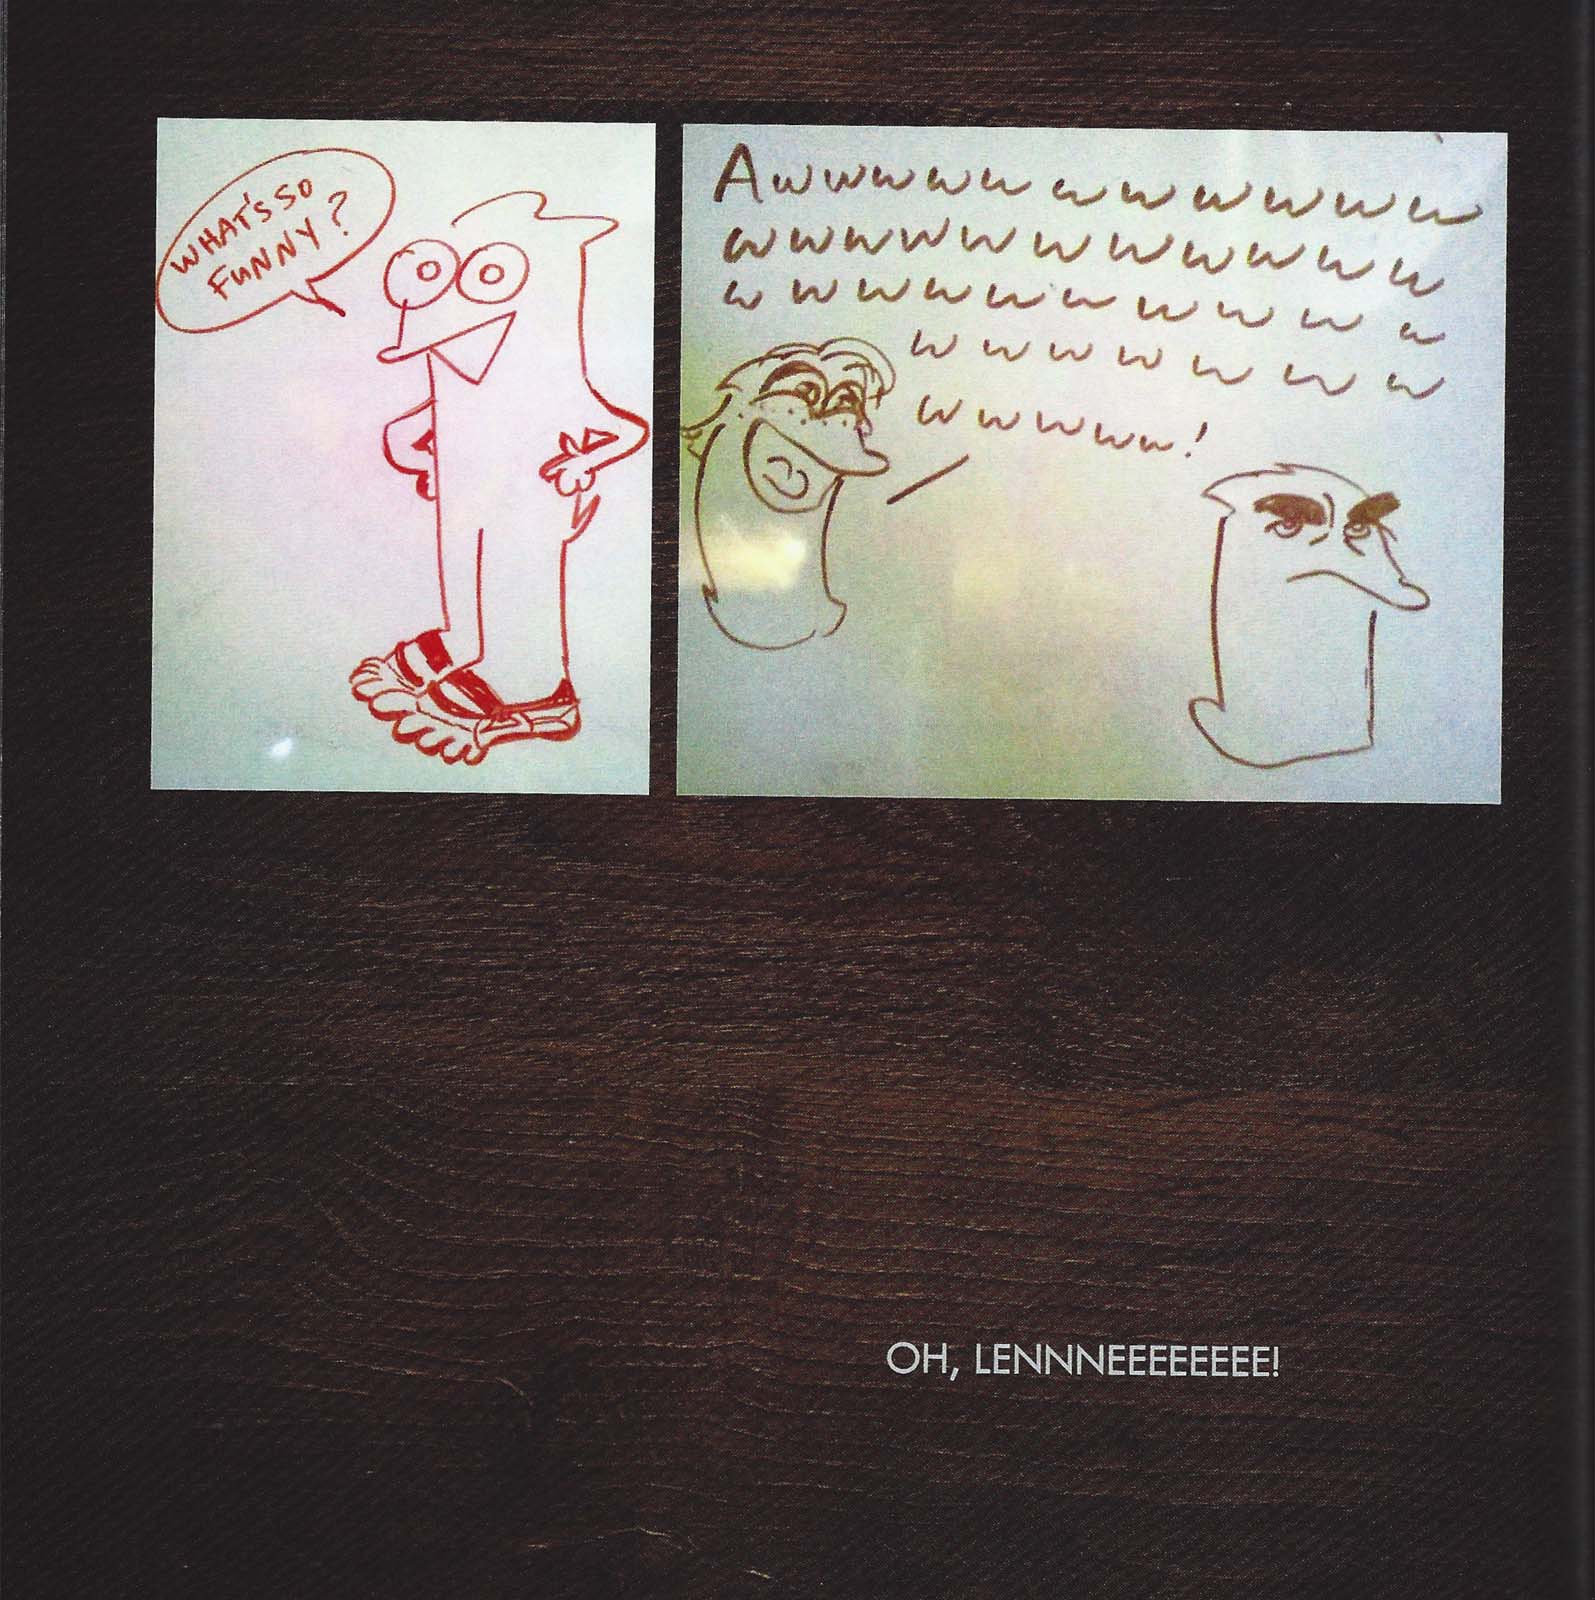 WHAT'S SO
FUNNY?
Awwwwwwwwwww
wwwwwwwwwww
wwwwwwwwww
wwwwwww
wwwwww!
OH, LENNNEEEEEEEE!